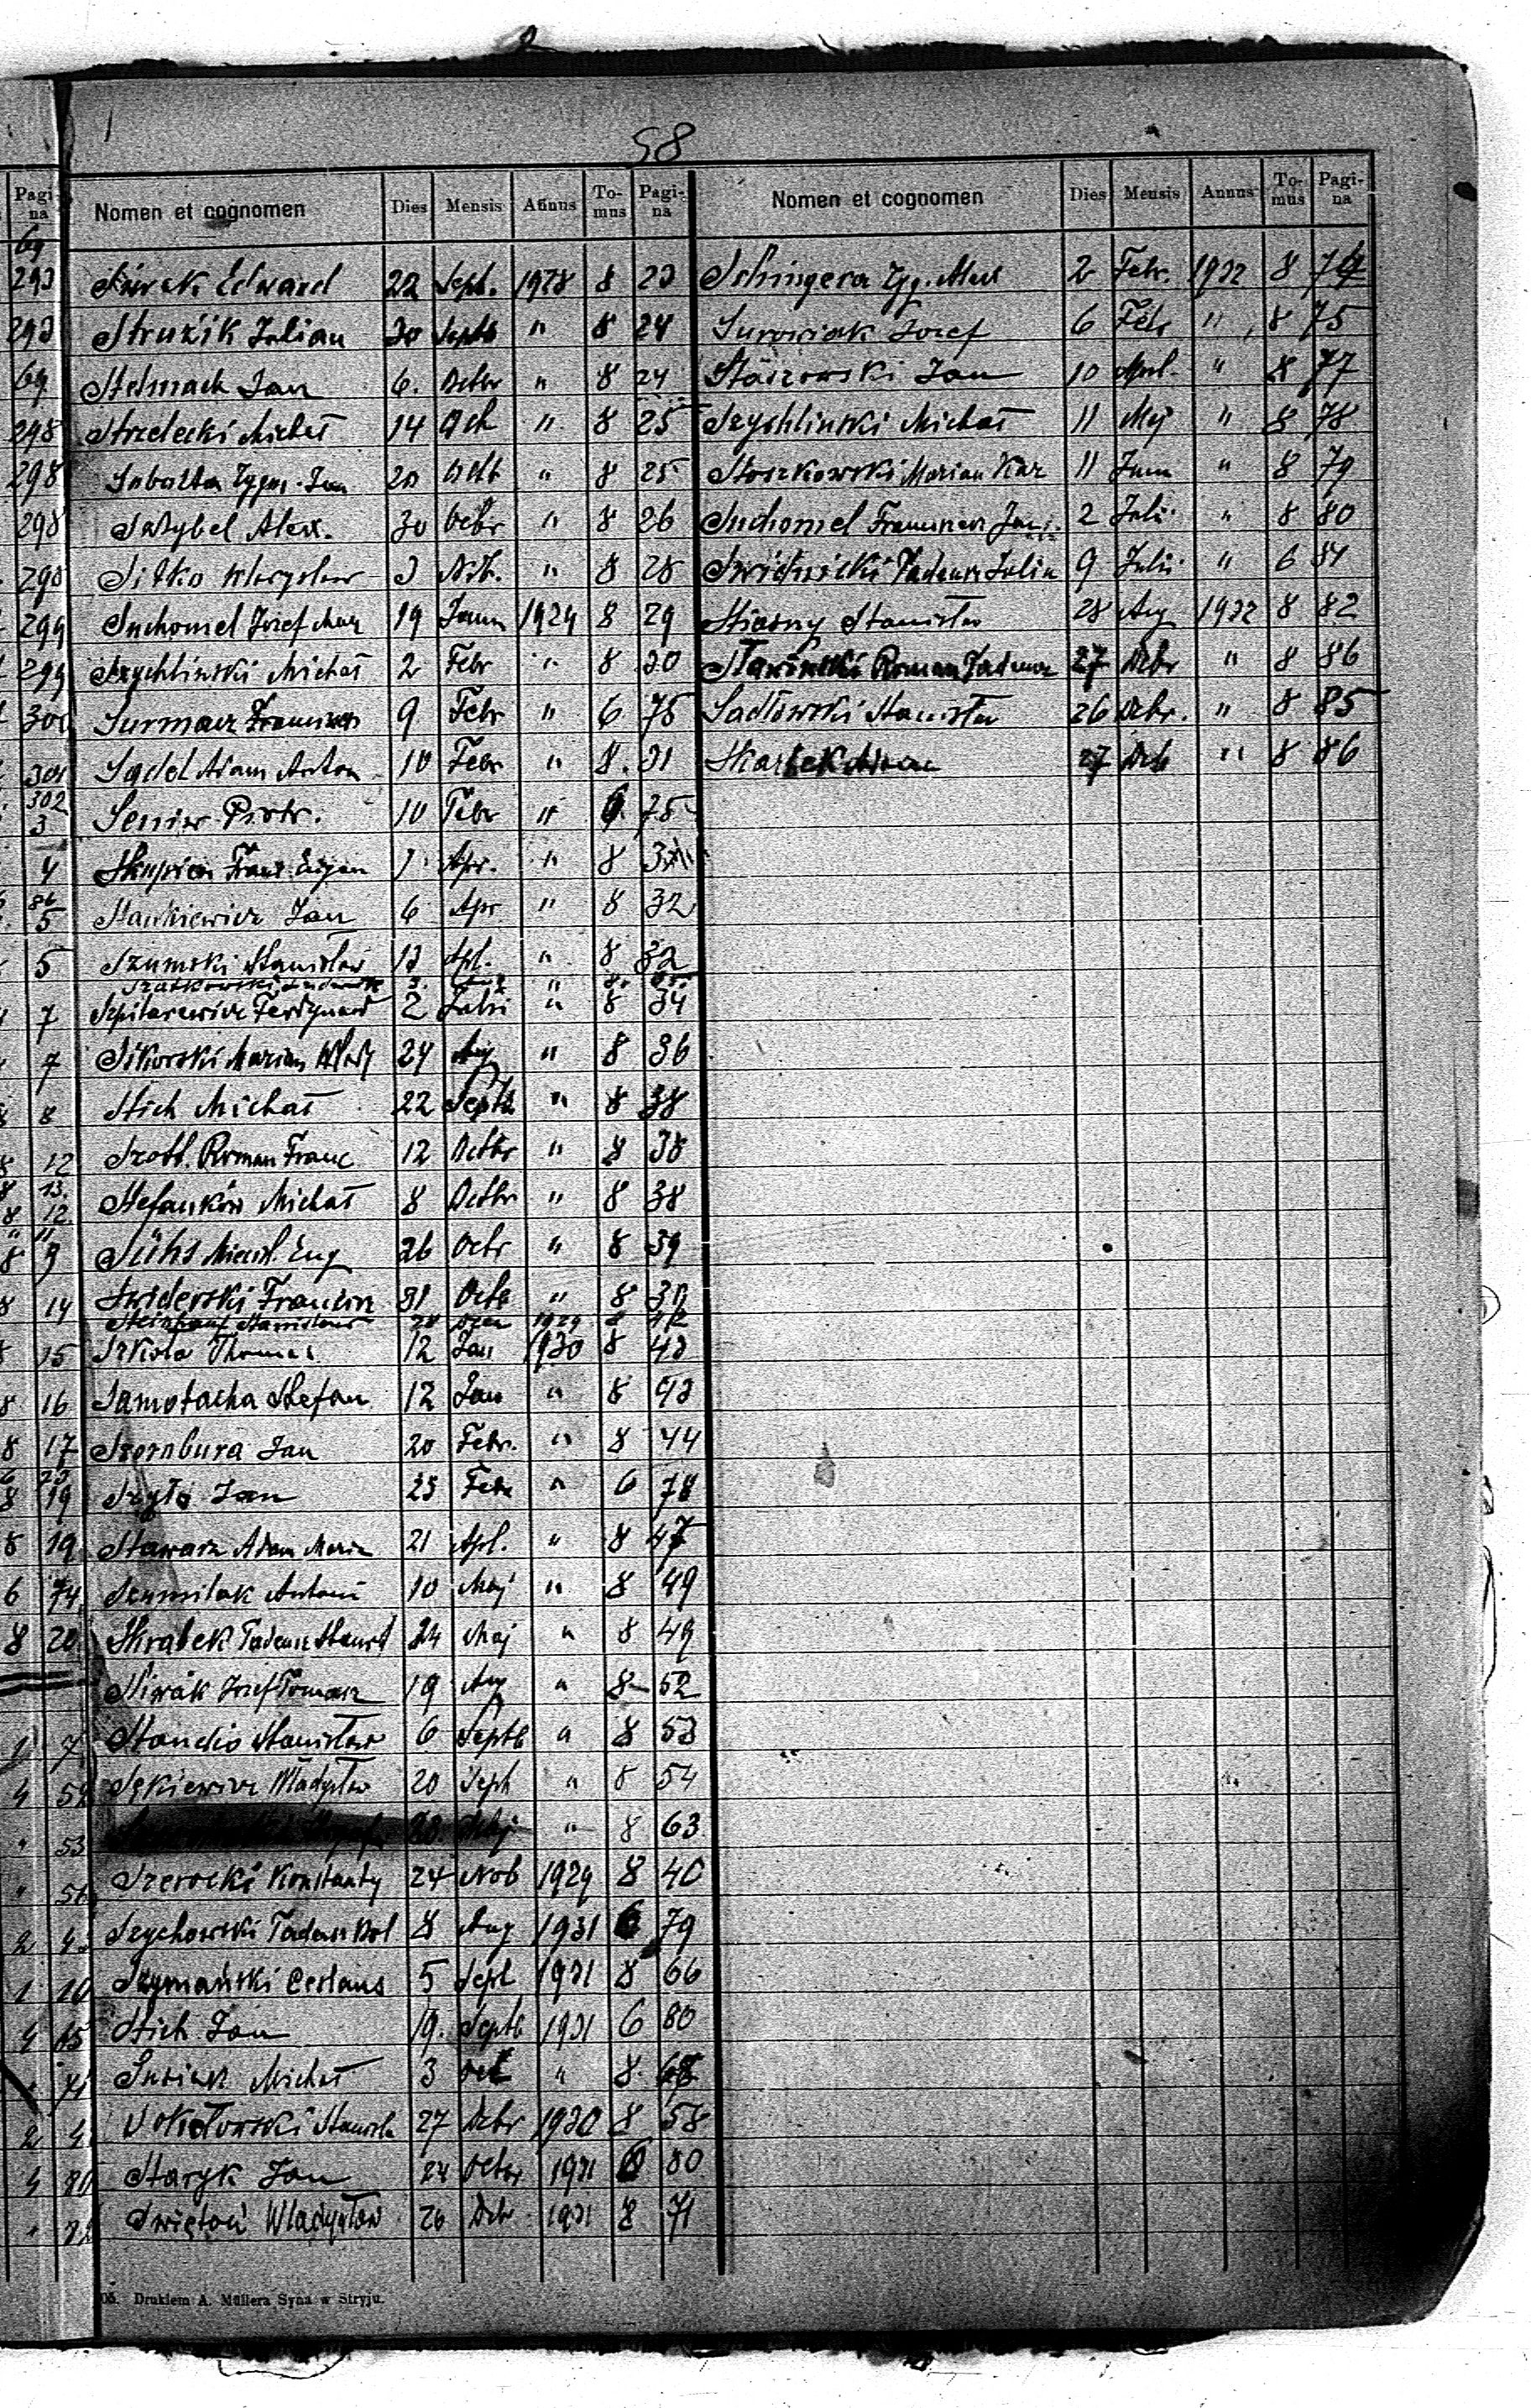 58
Pagina
Nomen et cognomen Dies Mensis Annus Tomus Pagina Nomen et cognomen Dies Mensis Annus Tomus Pagina
69
293 Edward 22 Sept. 1928 8 23
293 Struzik Julian 30 Septb " 8 24
69 Stelmach Jan 6. Octbr " 8 24
298 Strzelecki Michał 14 Octb " 8 25
298 Sobolta Zygm. Jan 20 Octb " 8 25
298 Alex. 30 Octbr " 8 26
298 Sitko Władysław 3 Nvb. " 8 28
299 Suchomel Józef Mar 19 Jann 1929 8 29
299 Szychliński Michał 2 Febr " 8 30
300 Surmacz Franciszek 9 Febr " 6 75
301 Sądel Adam Anton 10 Febr " 8. 31
302
3 Seniw Piotr. 10 Febr " 6 75
4 Skupień Franc. Eugen 1 Apr. " 8
86
5 Stankiewicz Jan 6 Apr " 8 32
5 Szumski Stanisław 13 Apl. " 8 32
Szatkowski Ludwik 3. " 8.
7 Szpitarewicz Ferdynand 2 Julii " 8 34
7 Sikorski Marian Wład 24 Aug " 8 36
8 8 Stich Michał 22 Septb " 8 38
8 12 Szott. Roman Franc 12 Octbr " 8 38
8 13.
8 12. Stefanków Michał 8 Octbr " 8 38
" 11
8 9 Sühs Miecsl. Eug 26 Octbr " 8 39
8 14 Świderski Franciszek 31 Octb " 8 39
Steinhauf Stanisław 28 1929 8 42
8 15 Szkoła Thomas 12 Jan 1930 8 43
8 16 Samołacha Stefan 12 Jan " 8 43
8 17 Szornbura Jan 20 Febr. " 8 44
6 23
8 19 Szyło Jan 23 Febr " 6 78
8 19 Stawarz Adam Maria 21 Apl. " 8 47
6 74 Szumilak Antoni 10 Maj " 8 49
8 20 Skrabek Tadeusz Stanisł 24 Maj " 8 49
Siwak Józef Tomasz 19 Aug " 8 52
1 7 Standio Stanisław 6 Septb " 8 53
4 52 Sękiewicz Władysław 20 Sept " 8 54
" 53 28. Maj " 8 63
" 56 Szerocki Konstanty 24 Nob 1929 8 40
2 Szychowski Tadeusz Bol 8 Aug 1931 6 79
1 10 Szymański Ceslaus 5 Sept 1931 8 66
4 65 Stich Jan 19. Septb 1931 6 80
71 Susiak Michał 3 Oct " 8
2 4 Sokołowski Stanisła 27 Dcbr 1930 8 58
4 80 Staryk Jan 24 Octbr 1931 6 80
" 82 Świętoń Władysław 26 Dcbr 1931 8 71
Schingera Zyg. Mar 2 Febr. 1932 8 74
Surowiak Józef 6 Febr " 8 75
Jan 10 Aprl. " 8 77
Szychlinski Michał 11 Maj " 8 78
Stoszkowski Marian Kaz 11 Juni " 8 79
Suchomel Franciszek Jan. 2 Julii " 8 80
Świetnicki Tadeusz Julia 9 Julii " 6 84
Stiasny Stanisław 28 Aug 1932 8 82
Sławiński Roman Tadeusz 27 Dcbr " 8 86
Sadłowski Stanisław 26 Dcbr. " 8 85
Skarbek 27 Dcb " 8 86
05. Drukiem A. Müllera Syna w Stryju.